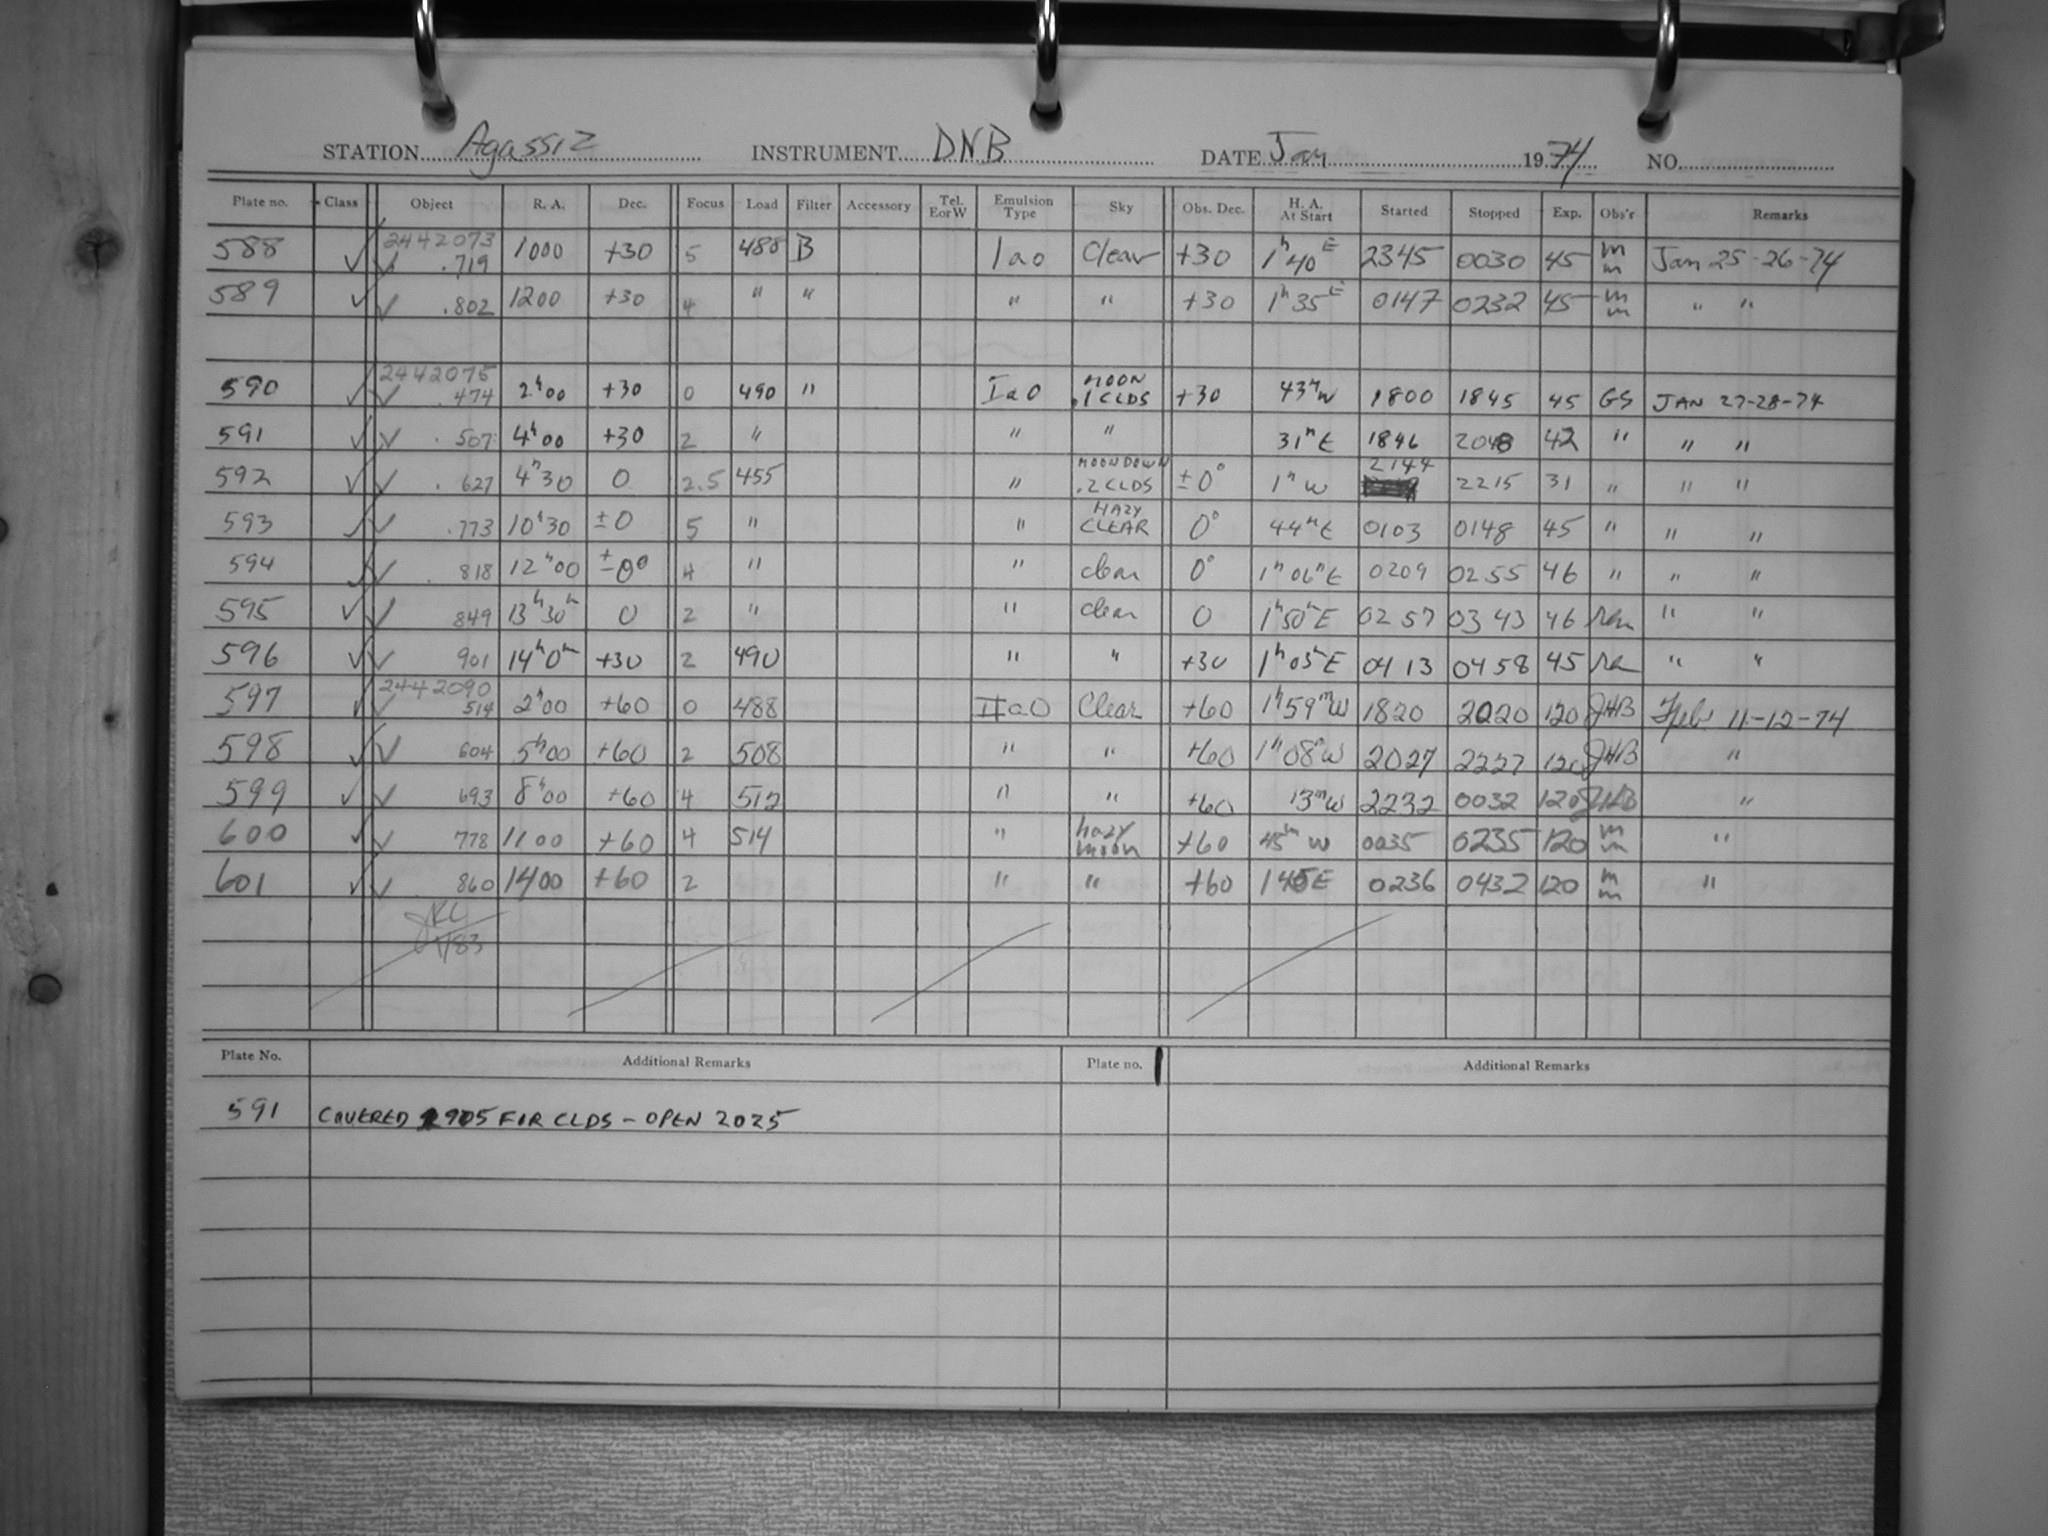 STATION Agassiz INSTRUMENT DNB DATE Jan 1974 NO.
Plate no. Class Object R. A. Dec. Focus Load Filter Accessory Tel. EorW Emulsion Type Sky Obs. Dec. H. A. At Start Started Stopped Exp. Obs'r Remarks
588 ✓ 2442073 ✓ .719 1000 +30 5 488 B IaO Clear +30 1h 40 E 2345 0030 45 mm Jan 25-26-74
589 ✓ ✓ .802 1200 +30 4 " " " " +30 1h 35 E 0147 0232 45 mm " "
590 ✓ 2442075 ✓ .474 2h00 +30 0 490 " IaO MOON .1 CLDS +30 43m W 1800 1845 45 GS JAN 27-28-74
591 ✓ ✓ .507 4h00 +30 2 " " " 31m E 1846 2048 42 " " "
592 ✓ ✓ .627 4h30 0 2.5 455 " MOON DOWN .2 CLDS ±0° 1h W 2144 2215 31 " " "
593 ✓ ✓ .773 10h30 ±0 5 " " HAZY CLEAR 0° 44m E 0103 0148 45 " " "
594 ✓ ✓ .818 12h00 ±0° 4 " " clear 0° 1h06m E 0209 0255 46 " " "
595 ✓ ✓ 849 13h30m 0 2 " " clear 0 1h50m E 0257 0343 46 " "
596 ✓ ✓ 901 14h0m +30 2 490 " " +30 1h03m E 0413 0458 45 " "
597 ✓ 2442090 ✓ 514 2h00 +60 0 488 IIaO Clear +60 1h59m W 1820 2020 120 JHB Feb 11-12-74
598 ✓ ✓ 604 5h00 +60 2 508 " " +60 1h08m W 2027 2227 120 JHB "
599 ✓ ✓ 693 8h00 +60 4 512 " " +60 13m W 2232 0032 120 JHB "
600 ✓ ✓ 778 1100 +60 4 514 " hazy moon +60 45m W 0035 0235 120 mm "
601 ✓ ✓ 860 1400 +60 2 " " +60 145E 0236 0432 120 mm "
1/83
Plate No. Additional Remarks Plate no. Additional Remarks
591 COVERED 1905 FOR CLDS – OPEN 2025